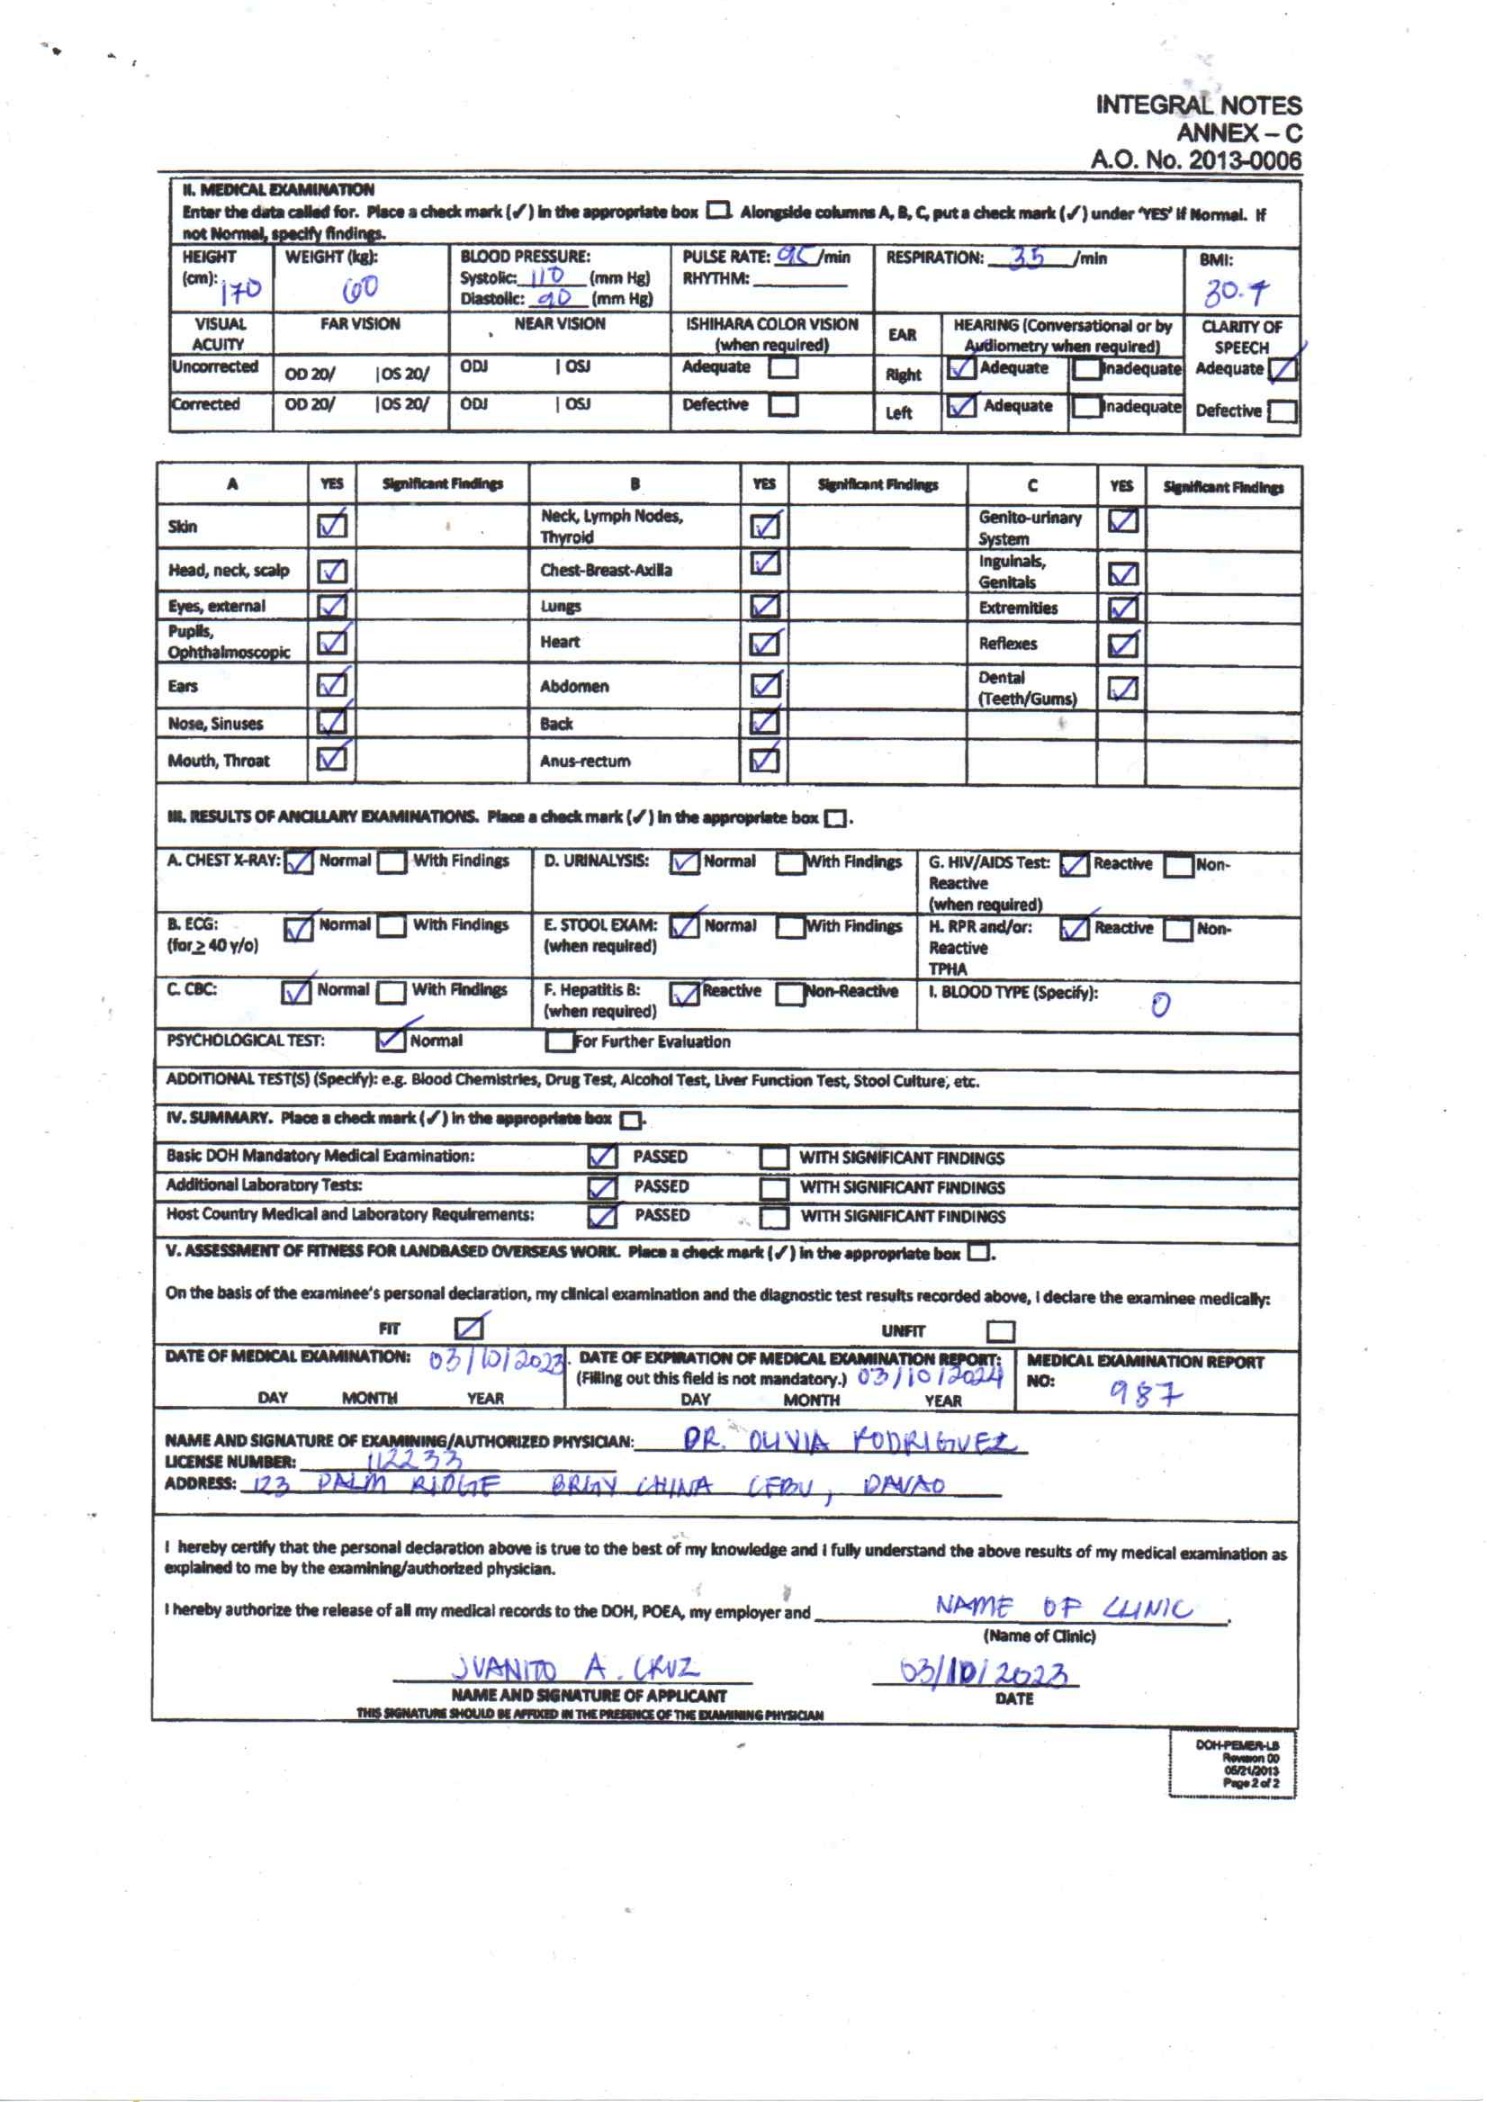 INTEGRAL NOTES
ANNEX – C
A.O. No. 2013-0006
II. MEDICAL EXAMINATION
Enter the data called for. Place a check mark (✓) in the appropriate box ☐. Alongside columns A, B, C, put a check mark (✓) under 'YES' if Normal. If
not Normal, specify findings.
HEIGHT (cm): 170
WEIGHT (kg): 60
BLOOD PRESSURE:
Systolic: 110 (mm Hg)
Diastolic: 90 (mm Hg)
PULSE RATE: 95 /min
RHYTHM:
RESPIRATION: 35 /min
BMI: 30.7
VISUAL ACUITY FAR VISION NEAR VISION ISHIHARA COLOR VISION (when required) EAR HEARING (Conversational or by Audiometry when required) CLARITY OF SPEECH
Uncorrected OD 20/ |OS 20/ ODJ | OSJ Adequate ☐ Right ☑ Adequate ☐ Inadequate Adequate ☑
Corrected OD 20/ |OS 20/ ODJ | OSJ Defective ☐ Left ☑ Adequate ☐ Inadequate Defective ☐
A YES Significant Findings B YES Significant Findings C YES Significant Findings
Skin ☑ Neck, Lymph Nodes, Thyroid ☑ Genito-urinary System ☑
Head, neck, scalp ☑ Chest-Breast-Axilla ☑ Inguinals, Genitals ☑
Eyes, external ☑ Lungs ☑ Extremities ☑
Pupils, Ophthalmoscopic ☑ Heart ☑ Reflexes ☑
Ears ☑ Abdomen ☑ Dental (Teeth/Gums) ☑
Nose, Sinuses ☑ Back ☑
Mouth, Throat ☑ Anus-rectum ☑
III. RESULTS OF ANCILLARY EXAMINATIONS. Place a check mark (✓) in the appropriate box ☐.
A. CHEST X-RAY: ☑ Normal ☐ With Findings D. URINALYSIS: ☑ Normal ☐ With Findings G. HIV/AIDS Test: ☑ Reactive ☐ Non-
Reactive
(when required)
B. ECG: ☑ Normal ☐ With Findings E. STOOL EXAM: ☑ Normal ☐ With Findings H. RPR and/or: ☑ Reactive ☐ Non-
(for ≥ 40 y/o) (when required) Reactive
TPHA
C. CBC: ☑ Normal ☐ With Findings F. Hepatitis B: ☑ Reactive ☐ Non-Reactive I. BLOOD TYPE (Specify): O
(when required)
PSYCHOLOGICAL TEST: ☑ Normal ☐ For Further Evaluation
ADDITIONAL TEST(S) (Specify): e.g. Blood Chemistries, Drug Test, Alcohol Test, Liver Function Test, Stool Culture, etc.
IV. SUMMARY. Place a check mark (✓) in the appropriate box ☐.
Basic DOH Mandatory Medical Examination: ☑ PASSED ☐ WITH SIGNIFICANT FINDINGS
Additional Laboratory Tests: ☑ PASSED ☐ WITH SIGNIFICANT FINDINGS
Host Country Medical and Laboratory Requirements: ☑ PASSED ☐ WITH SIGNIFICANT FINDINGS
V. ASSESSMENT OF FITNESS FOR LANDBASED OVERSEAS WORK. Place a check mark (✓) in the appropriate box ☐.
On the basis of the examinee's personal declaration, my clinical examination and the diagnostic test results recorded above, I declare the examinee medically:
FIT ☑ UNFIT ☐
DATE OF MEDICAL EXAMINATION: 03/10/2023
DAY MONTH YEAR
DATE OF EXPIRATION OF MEDICAL EXAMINATION REPORT:
(Filling out this field is not mandatory.) 03/10/2024
DAY MONTH YEAR
MEDICAL EXAMINATION REPORT
NO: 987
NAME AND SIGNATURE OF EXAMINING/AUTHORIZED PHYSICIAN: DR. OLIVIA RODRIGUEZ
LICENSE NUMBER: 112233
ADDRESS: 123 PALM RIDGE BRGY CHINA CEBU, DAVAO
I hereby certify that the personal declaration above is true to the best of my knowledge and I fully understand the above results of my medical examination as
explained to me by the examining/authorized physician.
I hereby authorize the release of all my medical records to the DOH, POEA, my employer and NAME OF CLINIC.
(Name of Clinic)
JUANITO A. CRUZ 03/10/2023
NAME AND SIGNATURE OF APPLICANT DATE
THIS SIGNATURE SHOULD BE AFFIXED IN THE PRESENCE OF THE EXAMINING PHYSICIAN
DOH-PEMER-LB
Revision 00
05/21/2013
Page 2 of 2